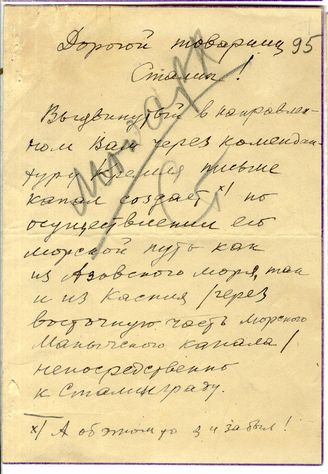 Дорогой товарищ 95
Сталин!
Выдвинутый в направлен-
ном Вам через комендан-
туру Кремля письме
канал создает x/ по
осуществлении его
морской путь как
из Азовского моря, так
и из Каспия /через
восточную часть Морского
Манычского канала/
непосредственно
к Сталинграду.
x/ А об этом-то я и забыл!